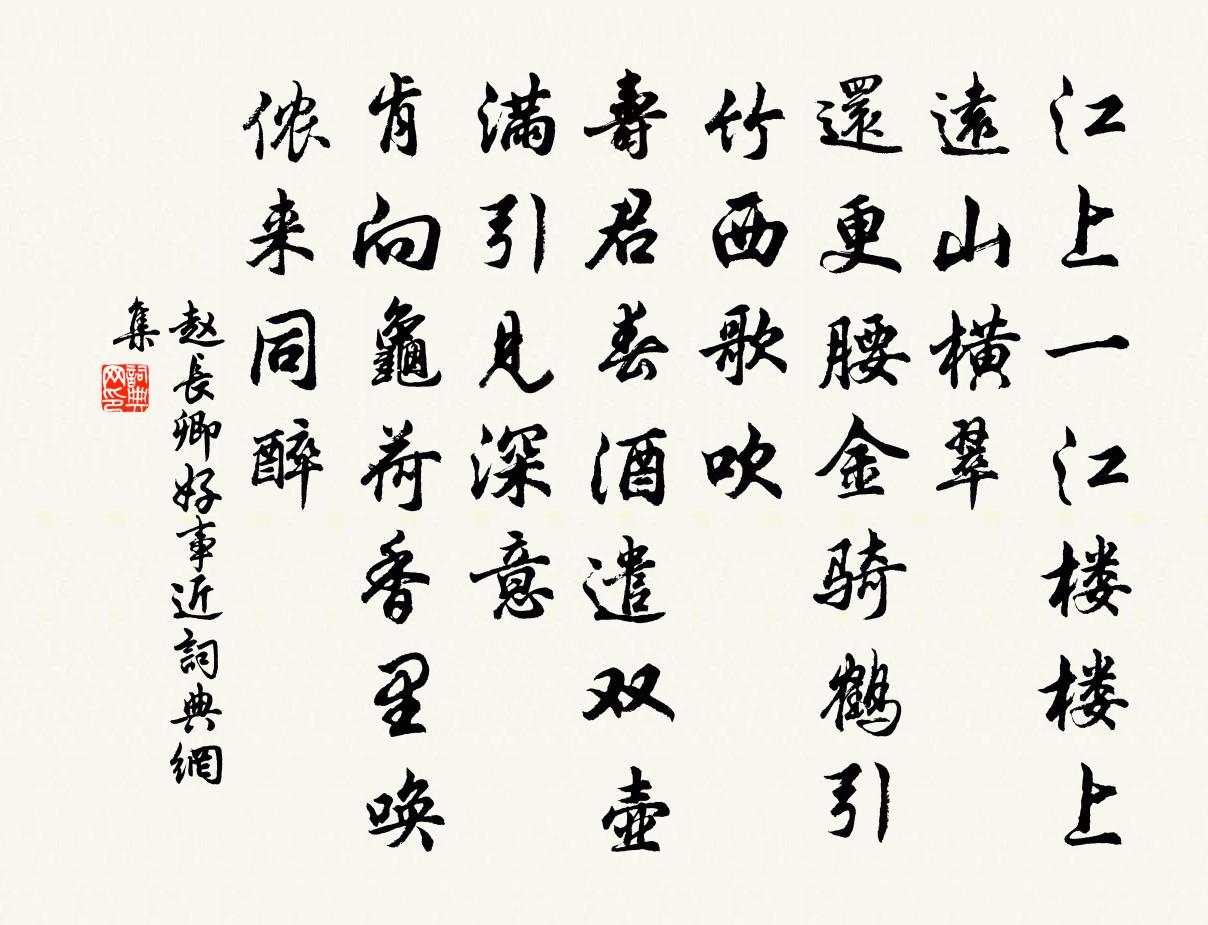 江上一江楼楼上
遠山横翠
還更腰金骑鶴引
竹西歌吹
壽君春酒遣双壶
满引見深意
肯向龜荷香里唤
侬来同醉
赵長卿好事近詞典網
集
詞典
网印